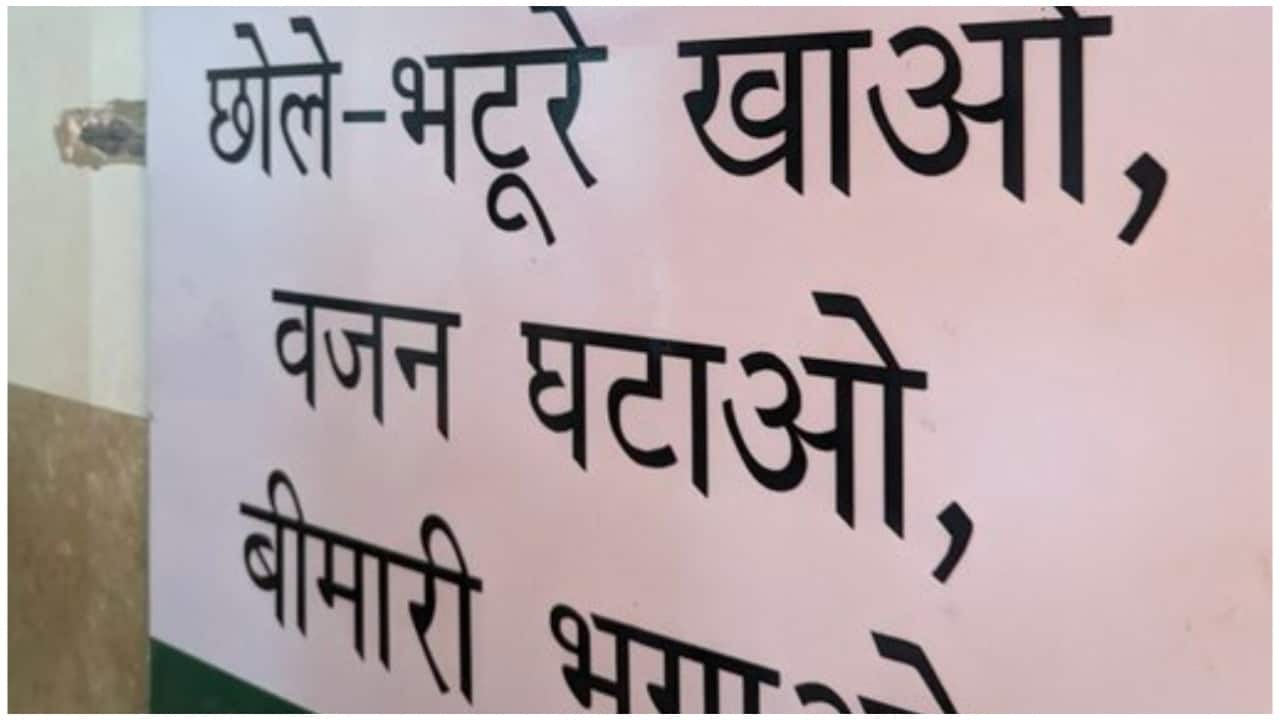 छोले-भटूरे खाओ,
वजन घटाओ,
बीमारी भगाओ